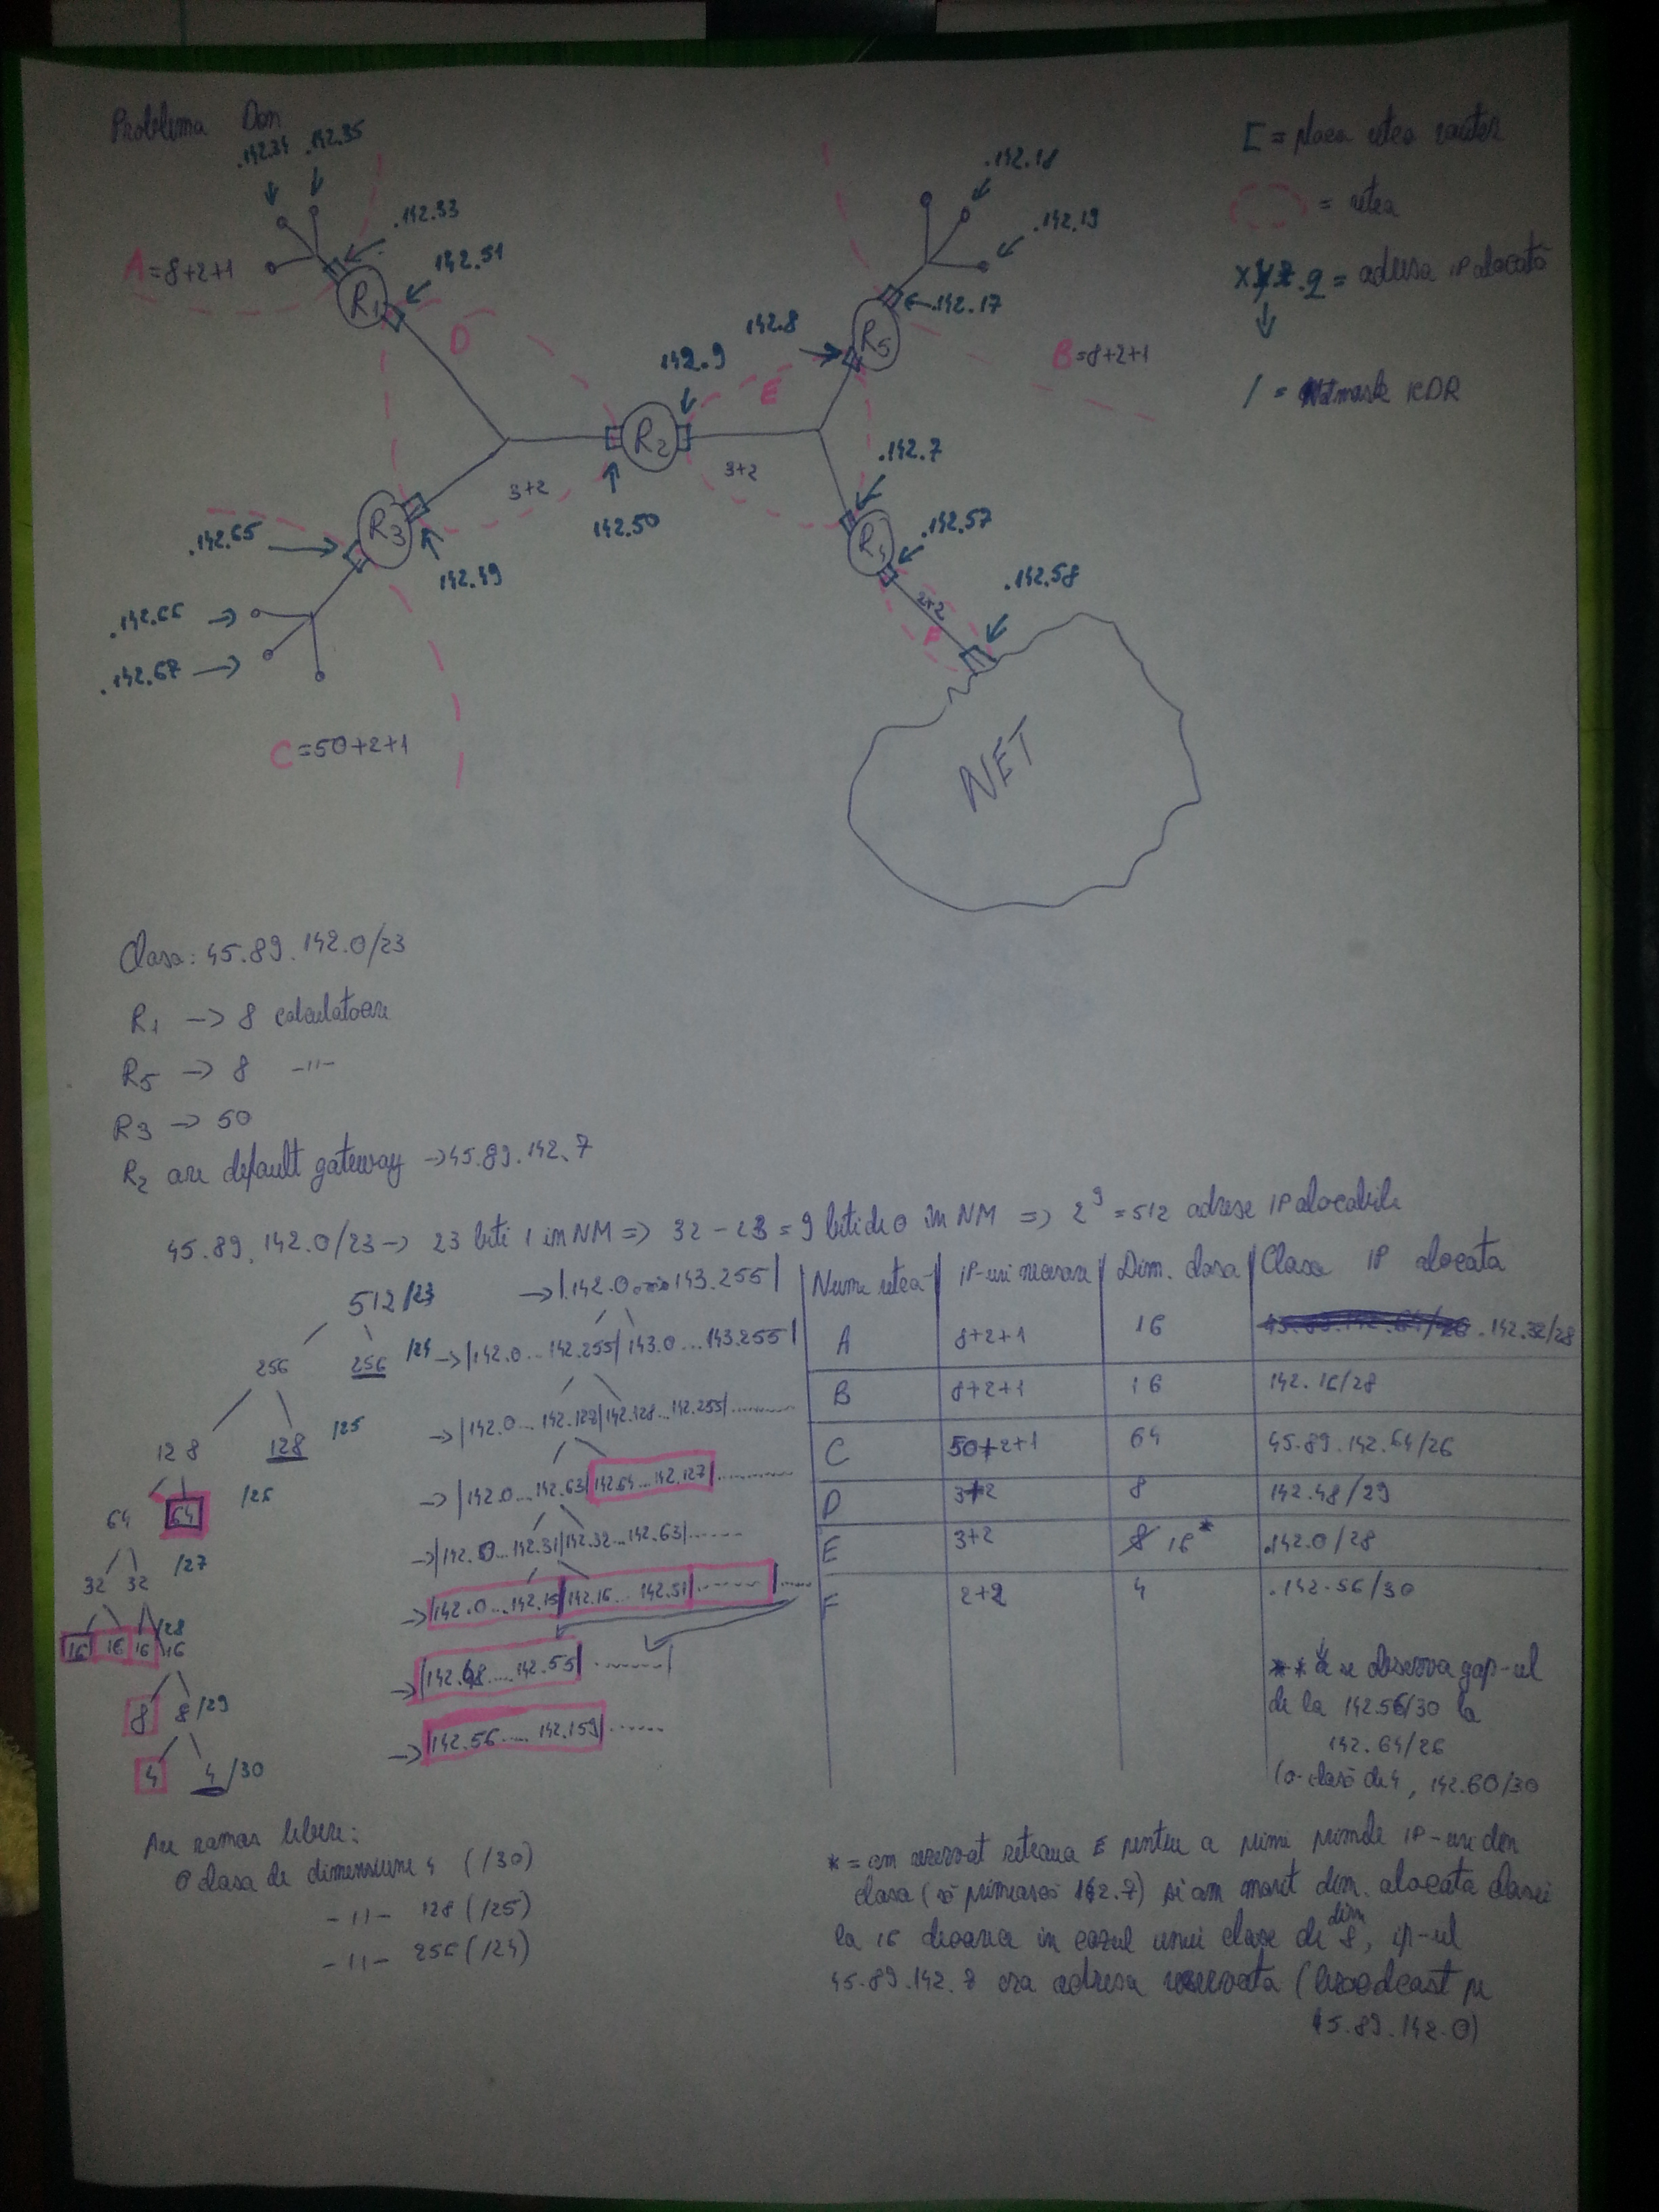 Problema Dan
.142.34 .142.35
.142.33
142.51
A=8+2+1
R1
D
.142.18
.142.19
.142.17
142.8
R5
B=8+2+1
142.9
E
R2
3+2
3+2
142.50
.142.7
.142.57
.142.58
2+2
F
R3
142.49
.142.65
.142.66
.142.67
C=50+2+1
NET
[ = placa retea router
= retea
.q = adresa IP alocată
/ = Netmask
Clasa: 45.89.142.0/23
R1 -> 8 calculatoare
R5 -> 8 -11-
R3 -> 50
R2 are default gateway ->45.89.142.7
45.89.142.0/23-> 23 biti 1 in NM => 32-23=9 biti de 0 in NM => 2^9=512 adrese IP alocabile
512 /23
256 256 /24
128 128 /25
64 64 /26
32 32 /27
16 16 16 16 /28
8 8 /29
4 4 /30
->|142.0 143.255|
->|142.0...142.255|143.0...143.255|
->|142.0...142.127|142.128...142.255|
->|142.0...142.63|142.64...142.127|
->|142.0...142.31|142.32...142.63|
->|142.0...142.15|142.16...142.31|
->|142.48....142.55|
->|142.56....142.159|
Nume retea | IP-uri necesare | Dim. clasa | Clasa IP alocata
A 8+2+1 16 .142.32/28
B 8+2+1 16 142.16/28
C 50+2+1 64 45.89.142.64/26
D 3+2 8 142.48/29
E 3+2 16* .142.0/28
F 2+2 4 .142.56/30
** a se observa gap-ul
de la 142.56/30 la
142.64/26
(o clasă de 4, 142.60/30
Au ramas libere:
O clasa de dimensiune 4 (/30)
-11- 128 (/25)
-11- 256 (/24)
* = am rezervat reteaua E pentru a primi primele IP-uri din
clasa (să primească 142.7) si am marit dim. alocata clasei
la 16 deoarece in cazul unei clase de dim 8, ip-ul
45.89.142.7 era adresa rezervata (broadcast pe
45.89.142.0)